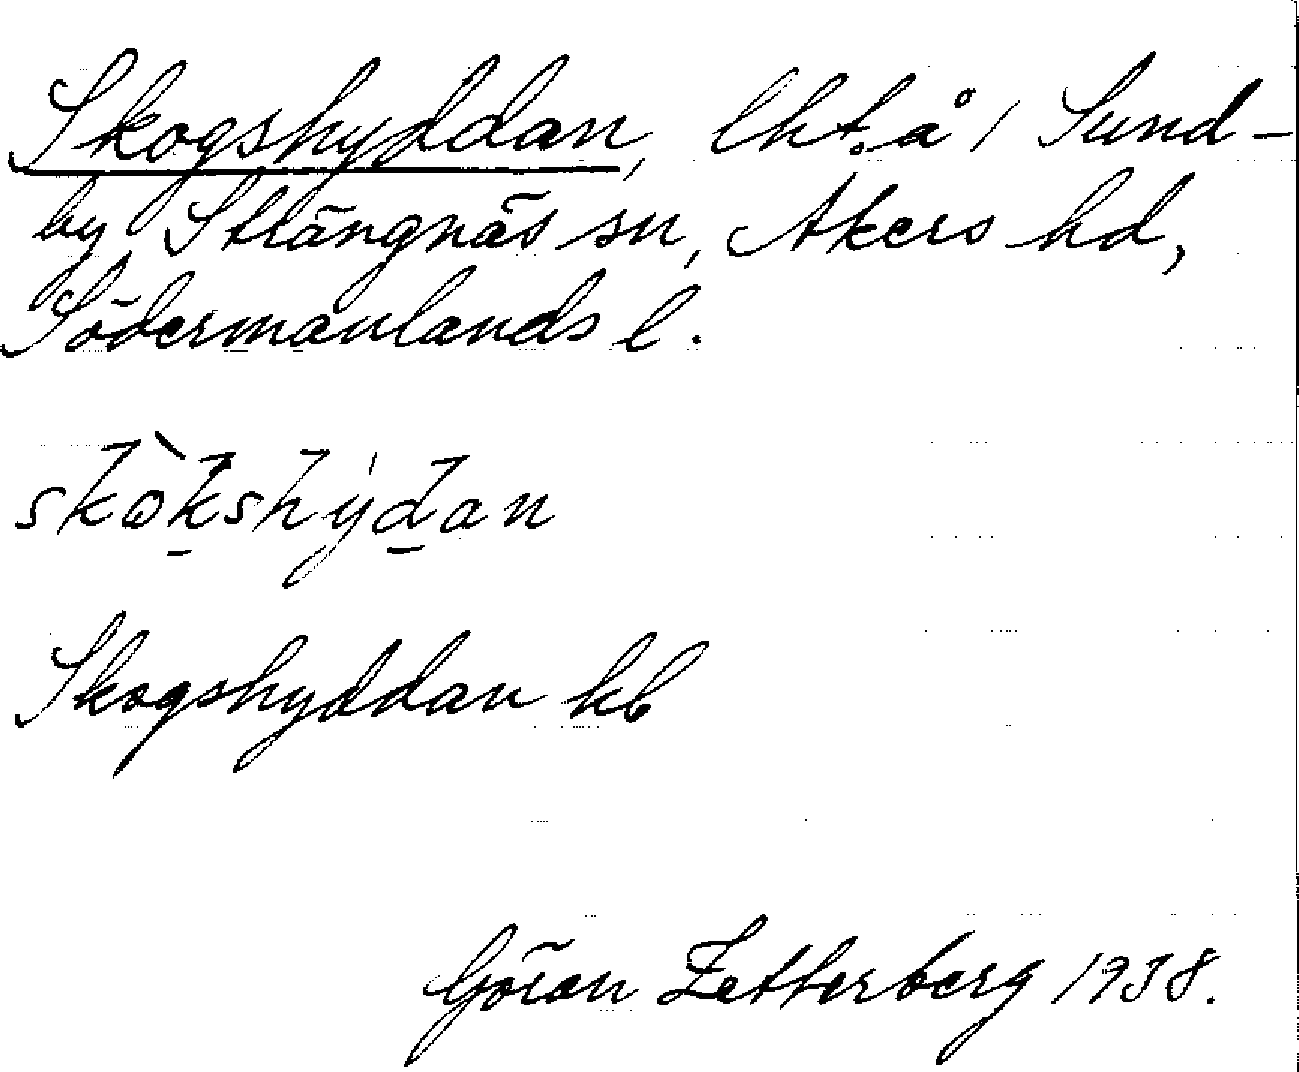 Skogshyddan, lht. å 1 Sund-
by Strängnäs sn, Åkers hd,
Södermanlands l.
skòkshýdan
Skogshyddan kb
Göran Zetterberg 1938.